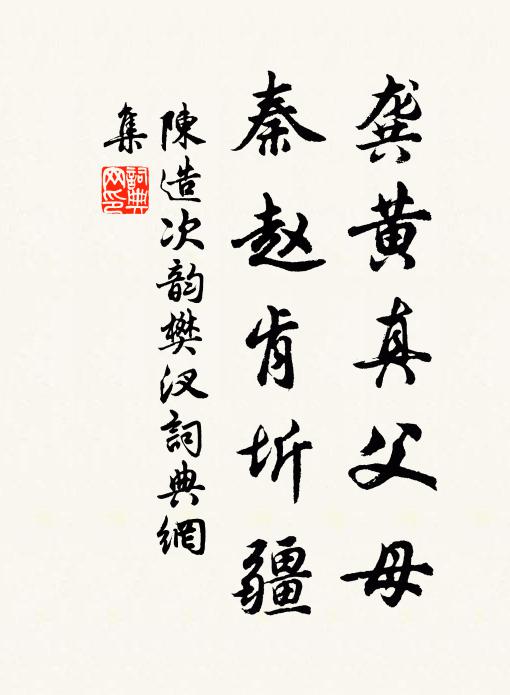 龚黄真父母
秦赵肯圻疆
陳造次韵樊汊詞典網
集
詞典网印